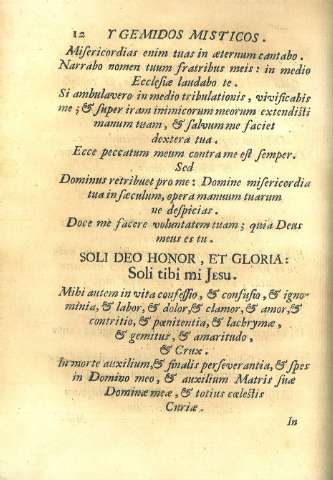 12 Y GEMIDOS MISTICOS.
Misericordias enim tuas in æternum cantabo.
Narrabo nomen tuum fratribus meis: in medio
Ecclesiæ laudabo te.
Si ambulavero in medio tribulationis, vivificabis
me; & super iram inimicorum meorum extendisti
manum tuam, & salvum me faciet
dextera tua.
Ecce peccatum meum contra me est semper.
Sed
Dominus retribuet pro me: Domine misericordia
tua in sæculum, opera manuum tuarum
ne despicias.
Doce me facere voluntatem tuam; quia Deus
meus es tu.
SOLI DEO HONOR, ET GLORIA:
Soli tibi mi Jesu.
Mihi autem in vita confessio, & confusio, & igno-
minia, & labor, & dolor, & clamor, & amor, &
contritio, & pœnitentia, & lachrymæ,
& gemitus, & amaritudo,
& Crux.
In morte auxilium, & finalis perseverantia, & spes
in Domino meo, & auxilium Matris suæ
Dominæ meæ, & totius cœlestis
Curiæ.
In